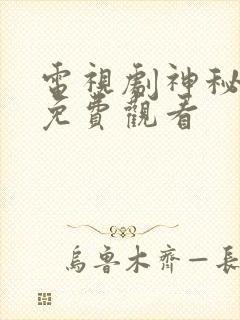 電視劇神秘
免費觀看
烏魯木齊—長